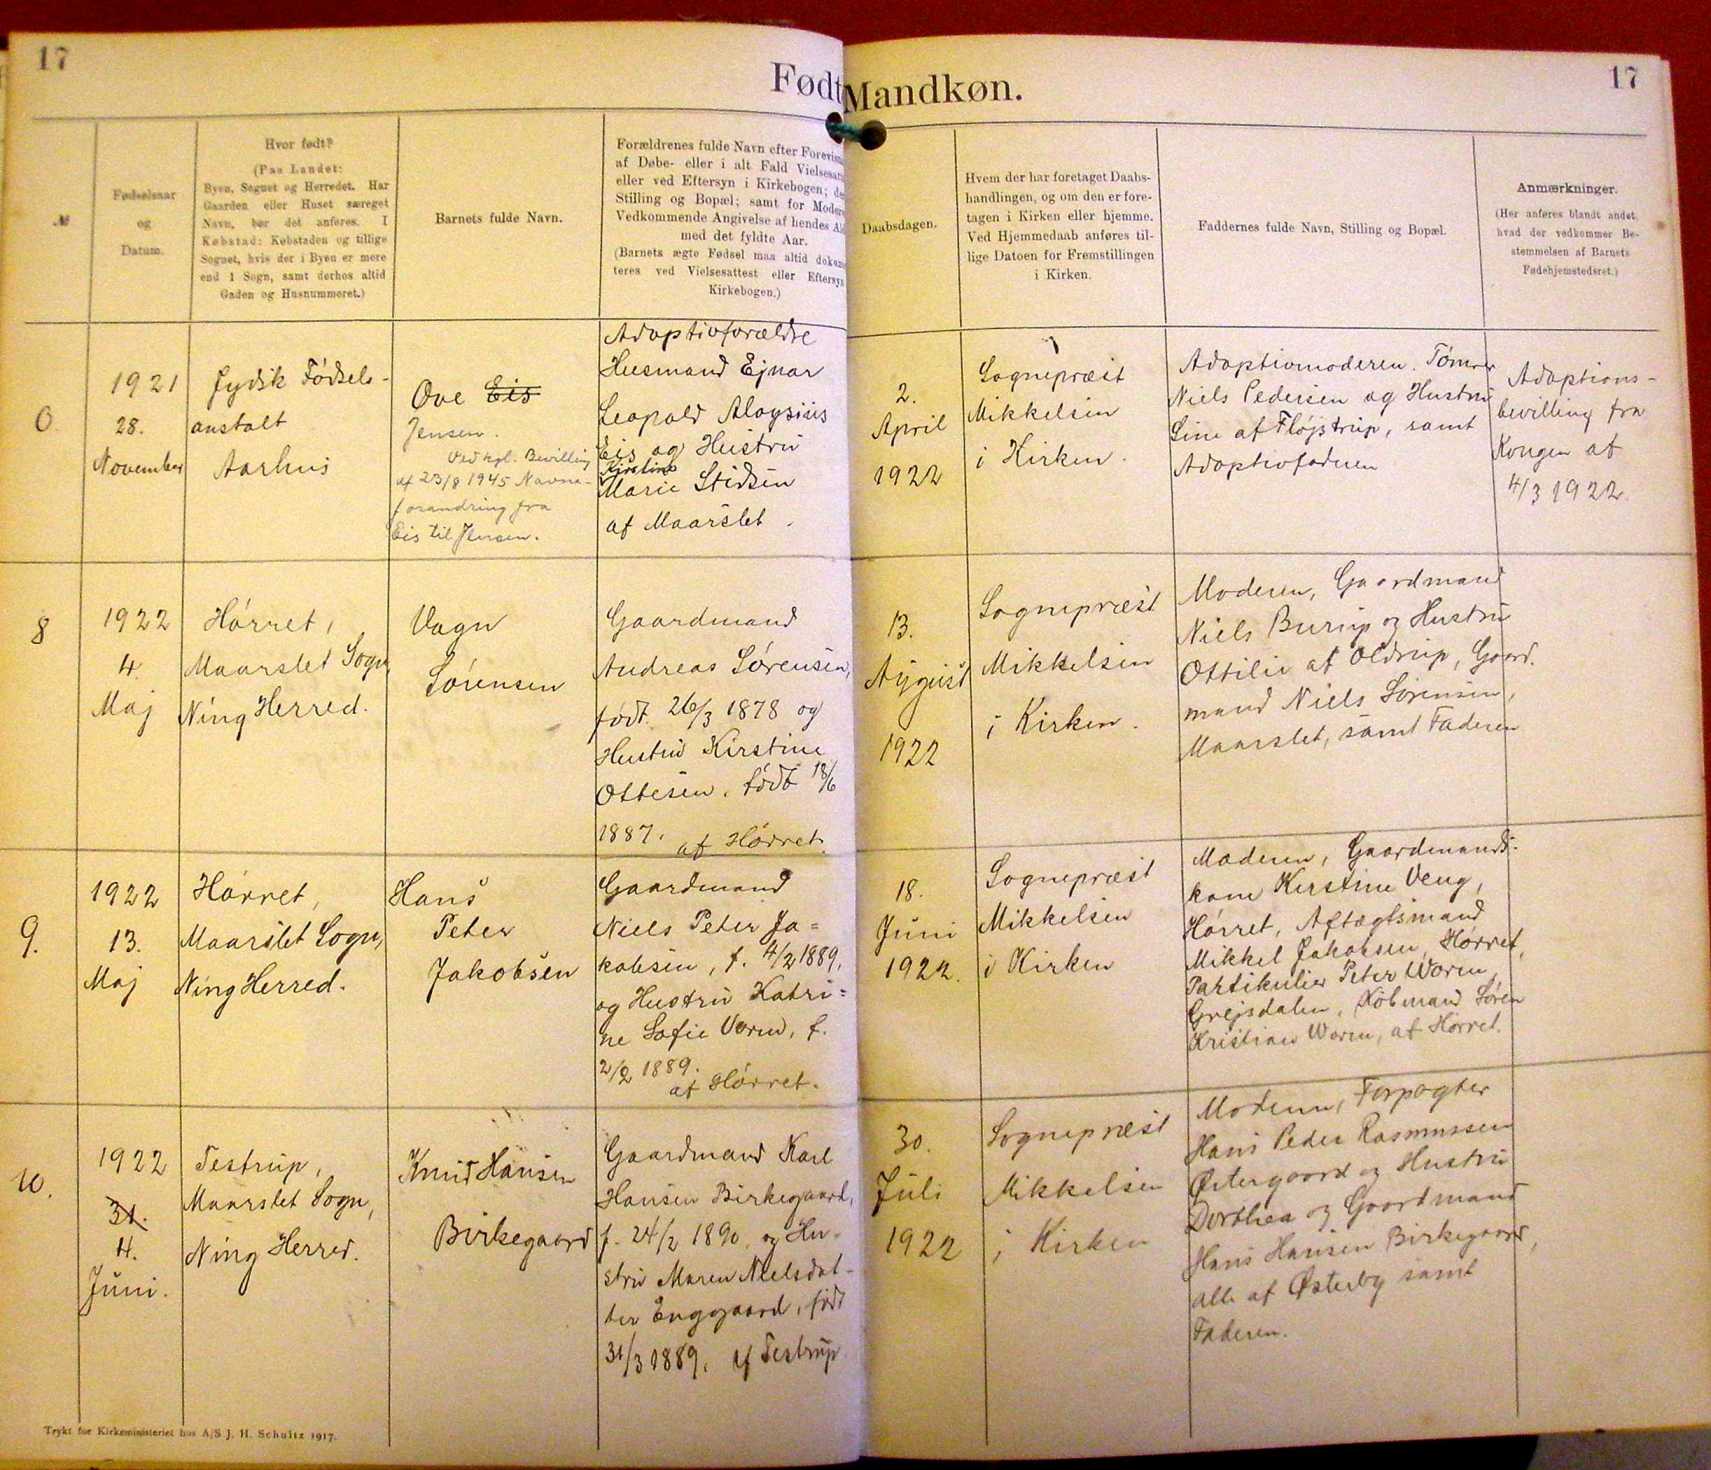 17
Født Mandkøn.
17
№
Fødselsaar
og
Datum.
Hvor født?
(Paa Landet:
Byen, Sognet og Herredet. Har
Gaarden eller Huset særeget
Navn, bør det anføres. I
Købstad: Købstaden og tillige
Sognet, hvis der i Byen er mere
end 1 Sogn, samt derhos altid
Gaden og Husnummeret.)
Barnets fulde Navn.
Forældrenes fulde Navn efter Forevisn
af Døbe- eller i alt Fald Vielsesat
eller ved Eftersyn i Kirkebogen; de
Stilling og Bopæl; samt for Moder
Vedkommende Angivelse af hendes Al
med det fyldte Aar.
(Barnets ægte Fødsel maa altid dokum
teres ved Vielsesattest eller Eftersyn
Kirkebogen.)
Daabsdagen.
Hvem der har foretaget Daabs-
handlingen, og om den er fore-
tagen i Kirken eller hjemme.
Ved Hjemmedaab anføres til-
lige Datoen for Fremstillingen
i Kirken.
Faddernes fulde Navn, Stilling og Bopæl.
Anmærkninger.
(Her anføres blandt andet,
hvad der vedkommer Be-
stemmelsen af Barnets
Fødehjemstedsret.)
0.
1921
28.
November
Jydsk Fødsels-
anstalt
Aarhus
Ove Eis
Jensen.
Ved kgl. Bevilling
af 23/8 1945 Navne-
forandring fra
Eis til Jensen.
Adoptivforældre
Husmand Ejnar
Leopold Aloysius
Eis og Hustru
Kirstine
Marie Stidsen
af Maarslet.
2.
April
1922
Sognepræst
Mikkelsen
i Kirken.
Adoptivmoderen. Tømrer
Niels Pedersen og Hustru
Sine af Fløjstrup, samt
Adoptivfaderen
Adoptions-
bevilling fra
Kongen af
4/3 1922.
8
1922
4.
Maj
Hørret,
Maarslet Sogn,
Ning Herred.
Vagn
Sørensen
Gaardmand
Andreas Sørensen,
født 26/3 1878 og
Hustru Kirstine
Ottesen, født 18/6
1887. af Hørret.
13.
August
1922
Sognepræst
Mikkelsen
i Kirken.
Moderen, Gaardmand
Niels Burup og Hustru
Ottilie af Oldrup, Gaard-
mand Niels Sørensen,
Maarslet, samt Faderen
9.
1922
13.
Maj
Hørret,
Maarslet Sogn,
Ning Herred.
Hans
Peter
Jakobsen
Gaardmand
Niels Peter Ja=
kobsen, f. 4/2 1889,
og Hustru Katri=
ne Sofie Worm, f.
2/2 1889.
af Hørret.
18.
Juni
1922.
Sognepræst
Mikkelsen
i Kirken
Moderen, Gaardmands-
kone Kirstine Veng,
Hørret, Aftægtsmand
Mikkel Jakobsen, Hørret,
Partikulier Peter Worm,
Grejsdalen, Købmand Søren
Kristian Worm, af Hørret.
10.
1922
31.
4.
Juni.
Testrup,
Maarslet Sogn,
Ning Herred.
Knud Hansen
Birkegaard
Gaardmand Karl
Hansen Birkegaard,
f. 24/2 1890, og Hu-
stru Maren Nielsdat-
ter Enggaard, født
31/3 1889, af Testrup
30.
Juli
1922
Sognepræst
Mikkelsen
i Kirken
Moderen, Forpagter
Hans Peder Rasmussen
Østergaard og Hustru
Dorthea og Gaardmand
Hans Hansen Birkegaard,
alle af Østerby samt
Faderen.
Trykt for Kirkeministeriet hos A/S J. H. Schultz 1917.